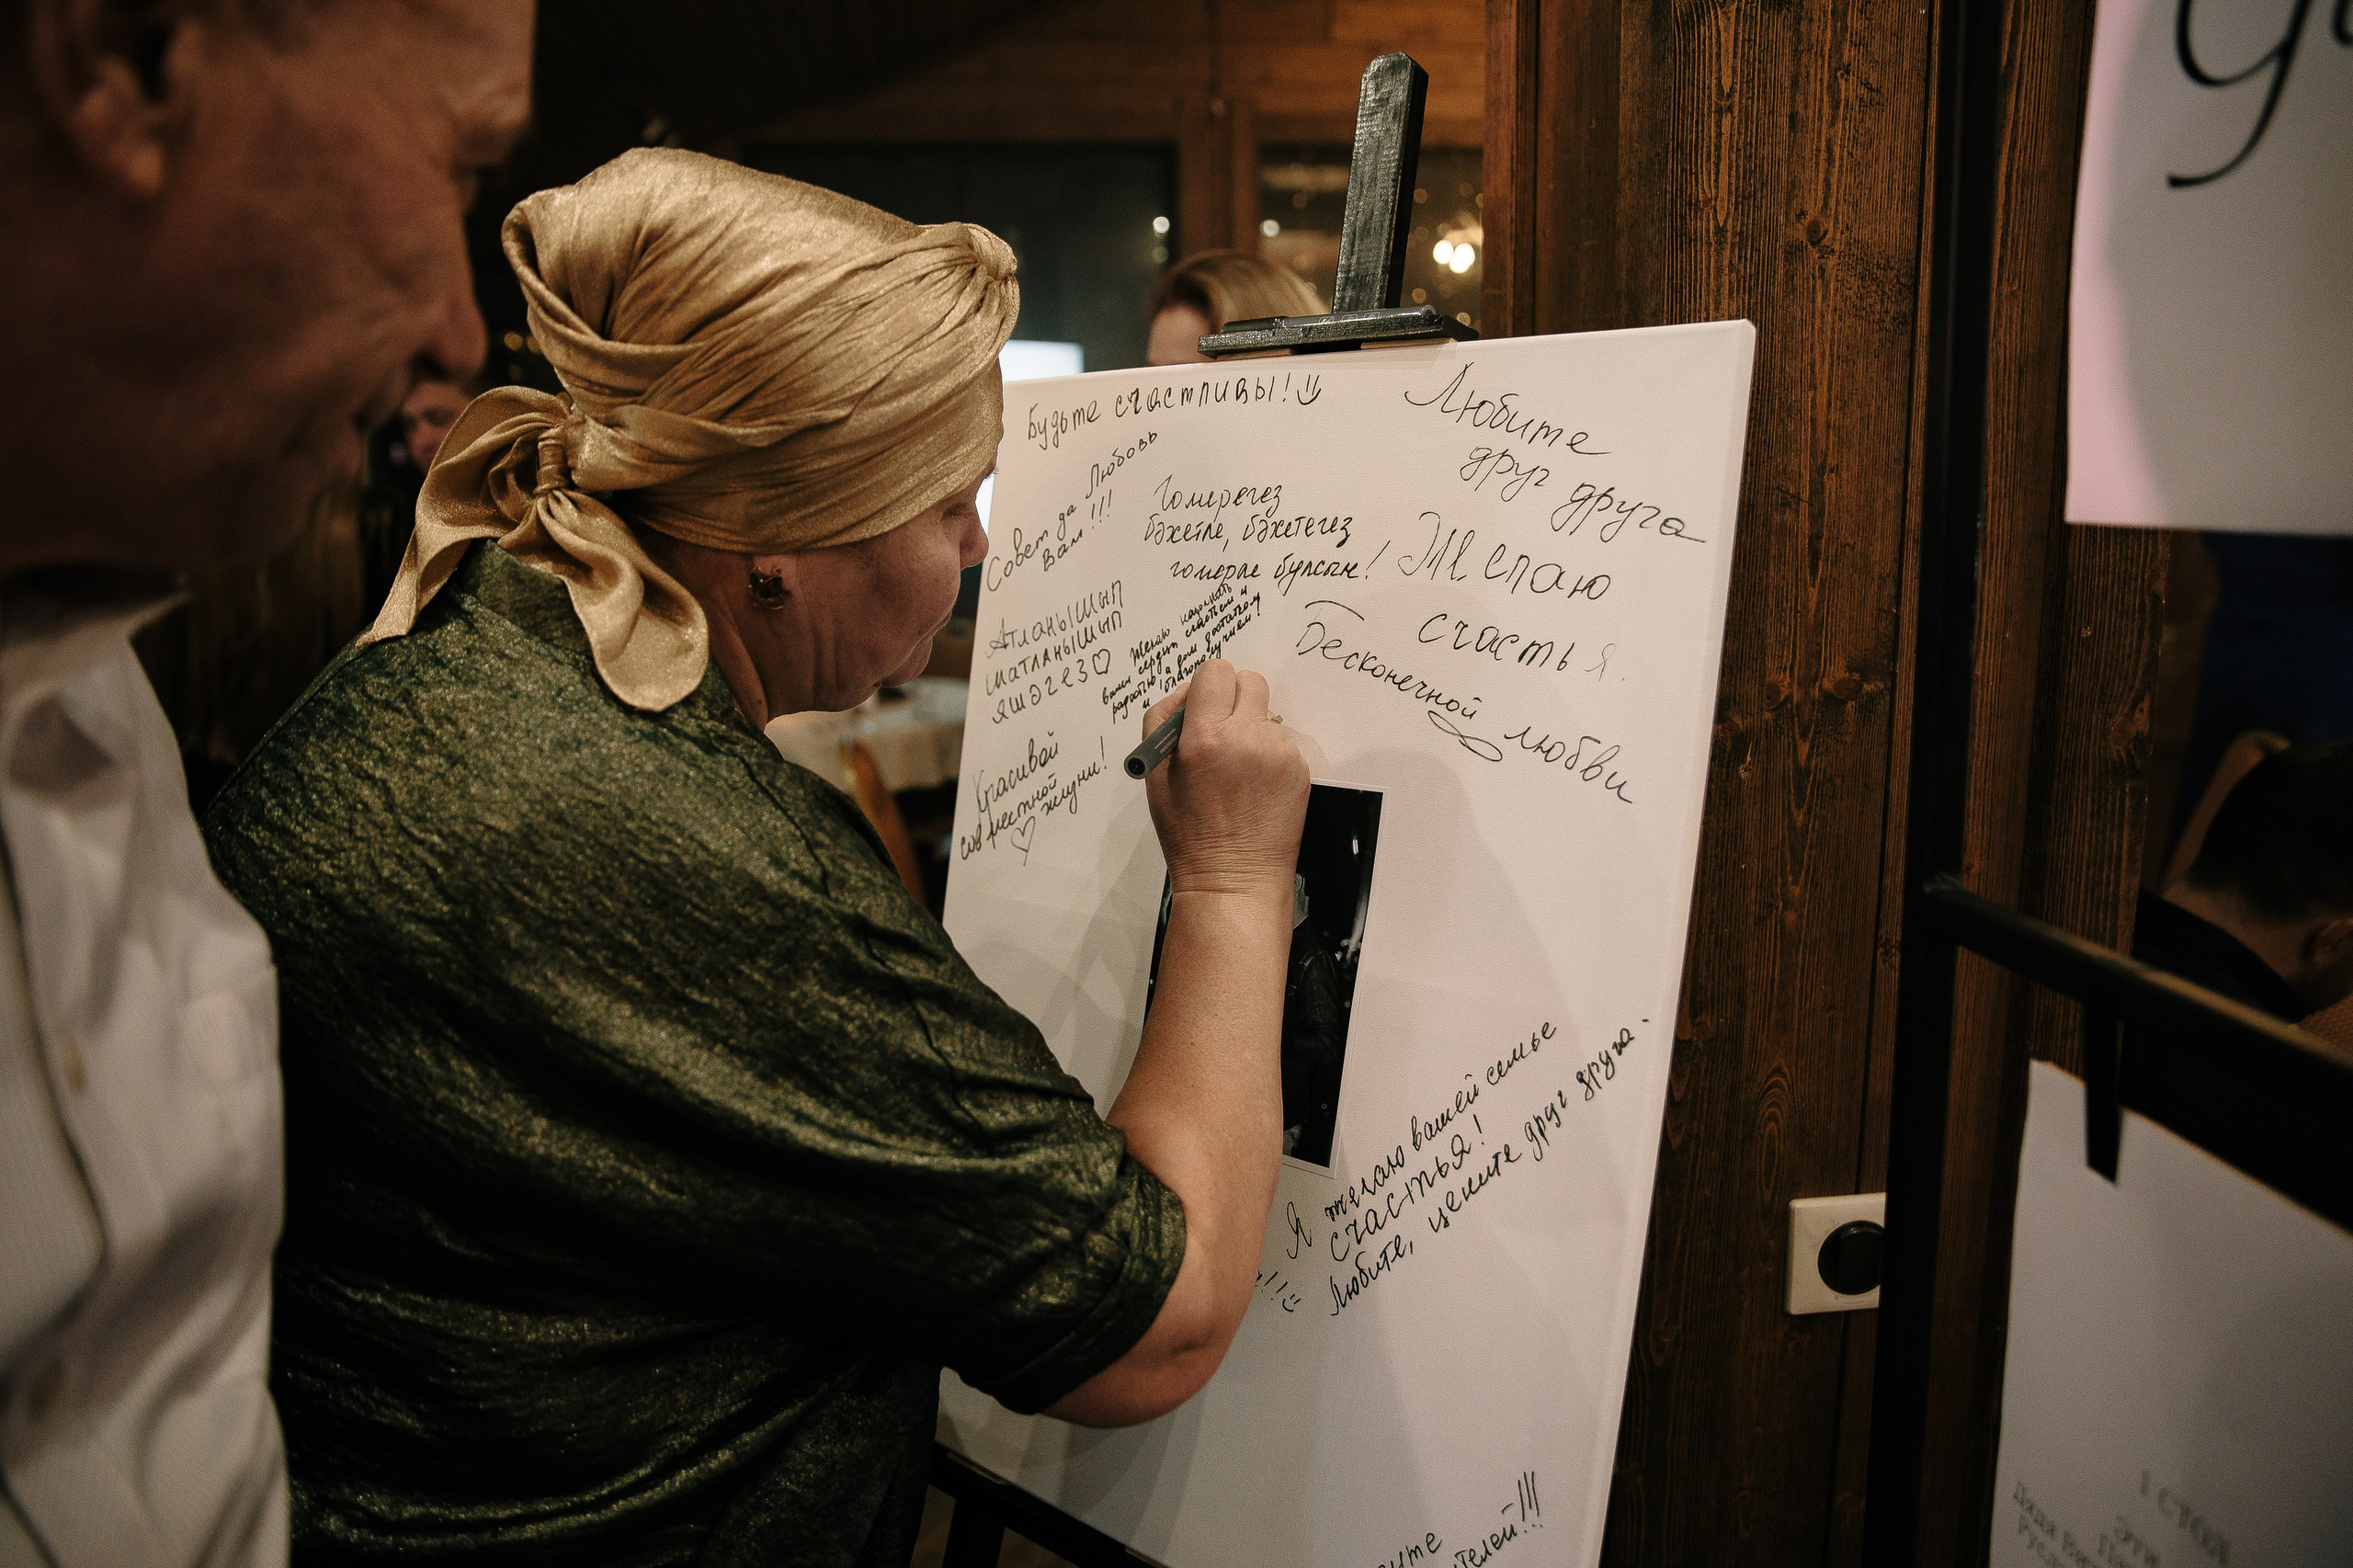 Будьте счастливы!
Совет да Любовь
Вам!!!
Гомерегез
бәхетле, бәхетегез
гомерле булсын!
Атланышып
шатланышып
яшәгез
Желаю наполнить
ваши сердца счастьем и
радостью, а дом достатком
и благополучием!
Красивой
совместной
жизни!
Любите
друг друга
Желаю
счастья.
Бесконечной любви
Я желаю вашей семье
счастья!
Любите, цените друг друга.
1 СТОЛ